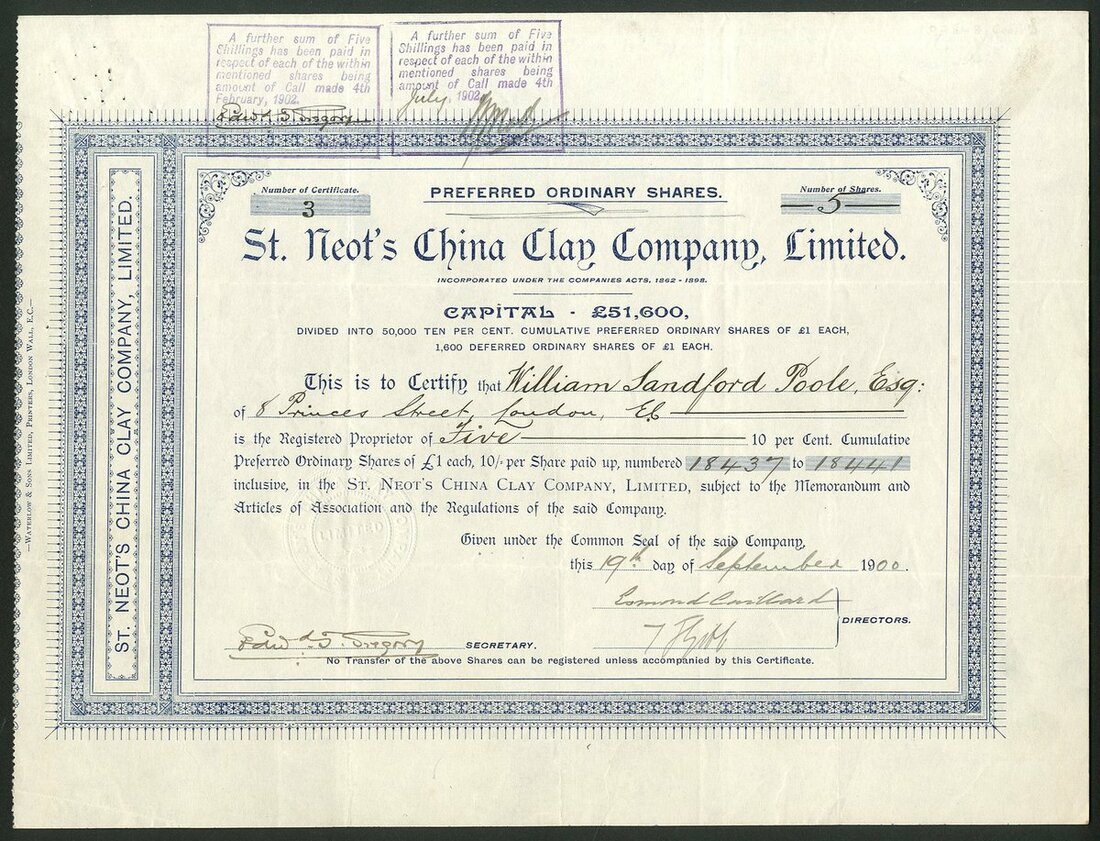 A further sum of Five
Shillings has been paid in
respect of each of the within
mentioned shares being
amount of Call made 4th
February, 1902.
Edwd. T. Gregory
A further sum of Five
Shillings has been paid in
respect of each of the within
mentioned shares being
amount of Call made 4th
July, 1902
Number of Certificate.
3
PREFERRED ORDINARY SHARES.
Number of Shares.
5
St. Neot's China Clay Company, Limited.
INCORPORATED UNDER THE COMPANIES ACTS, 1862 - 1898.
CAPITAL - £51,600,
DIVIDED INTO 50,000 TEN PER CENT. CUMULATIVE PREFERRED ORDINARY SHARES OF £1 EACH,
1,600 DEFERRED ORDINARY SHARES OF £1 EACH.
This is to Certify that William Sandford Poole, Esq:
of 8 Princes Street, London, EC
is the Registered Proprietor of Five 10 per Cent. Cumulative
Preferred Ordinary Shares of £1 each, 10/- per Share paid up, numbered 18437 to 18441
inclusive, in the ST. NEOT'S CHINA CLAY COMPANY, LIMITED, subject to the Memorandum and
Articles of Association and the Regulations of the said Company.
Given under the Common Seal of the said Company,
this 19th day of September 1900.
DIRECTORS.
Edwd. T. Gregory SECRETARY.
No Transfer of the above Shares can be registered unless accompanied by this Certificate.
ST. NEOT'S CHINA CLAY COMPANY, LIMITED.
—WATERLOW & SONS LIMITED, PRINTERS, LONDON WALL, E.C.—
LIMITED